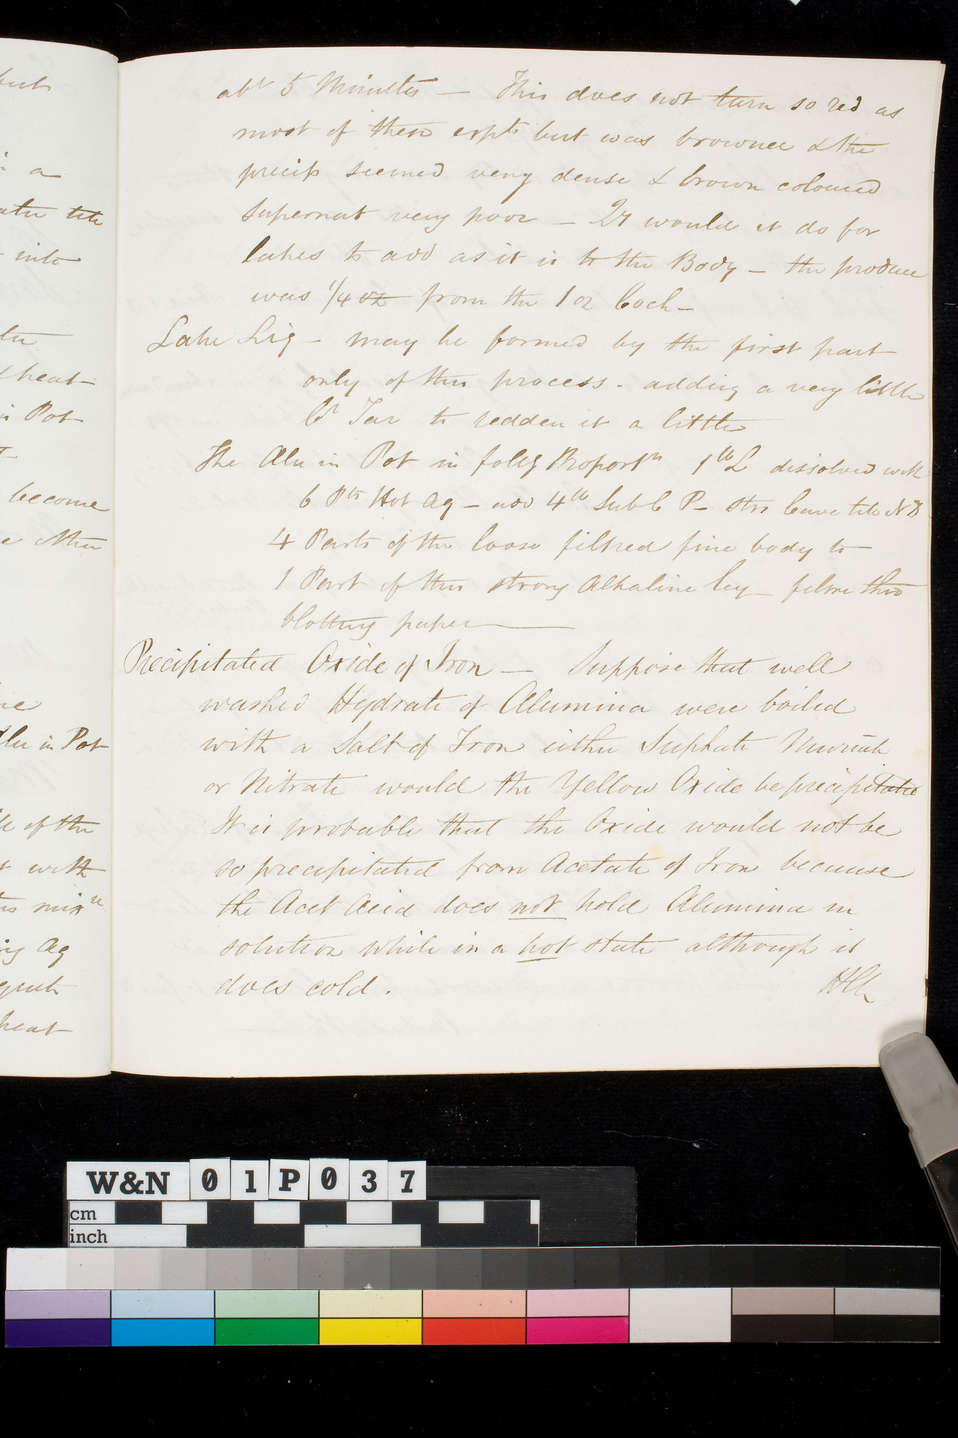 abt 5 Minutes — This does not turn so red as
most of these expts but was browner & the
precip seemed very dense & brown coloured
Supernat very poor — Qy would it do for
Lakes to add as it is to the Body — the produce
was 1/4 oz from the 1 oz Coch —
Lake Liq — may be formed by the first part
only of this process - adding a very little
Cr Tar to redden it a little
The Alu in Pot in follg Proportns 1 lb L dissolved with
6 Pts Hot Aq — add 4 lb Sub C P — stir leave till ND
4 Parts of the loose filtred fine body to
1 Part of this strong Alkaline ley — filtre thro
blotting paper
Precipitated Oxide of Iron — Suppose that well
washed Hydrate of Alumina were boiled
with a Salt of Iron either Sulphate Muriate
or Nitrate would the Yellow Oxide be precipitated
It is probable that the Oxide would not be
so precipitated from Acetate of Iron because
the Acet Acid does not hold Alumina in
solution while in a hot state although it
does cold.
but
a
till
into
heat
in Pot
become
other
in Pot
of the
with
Aq
heat
W&N 01P037
cm
inch